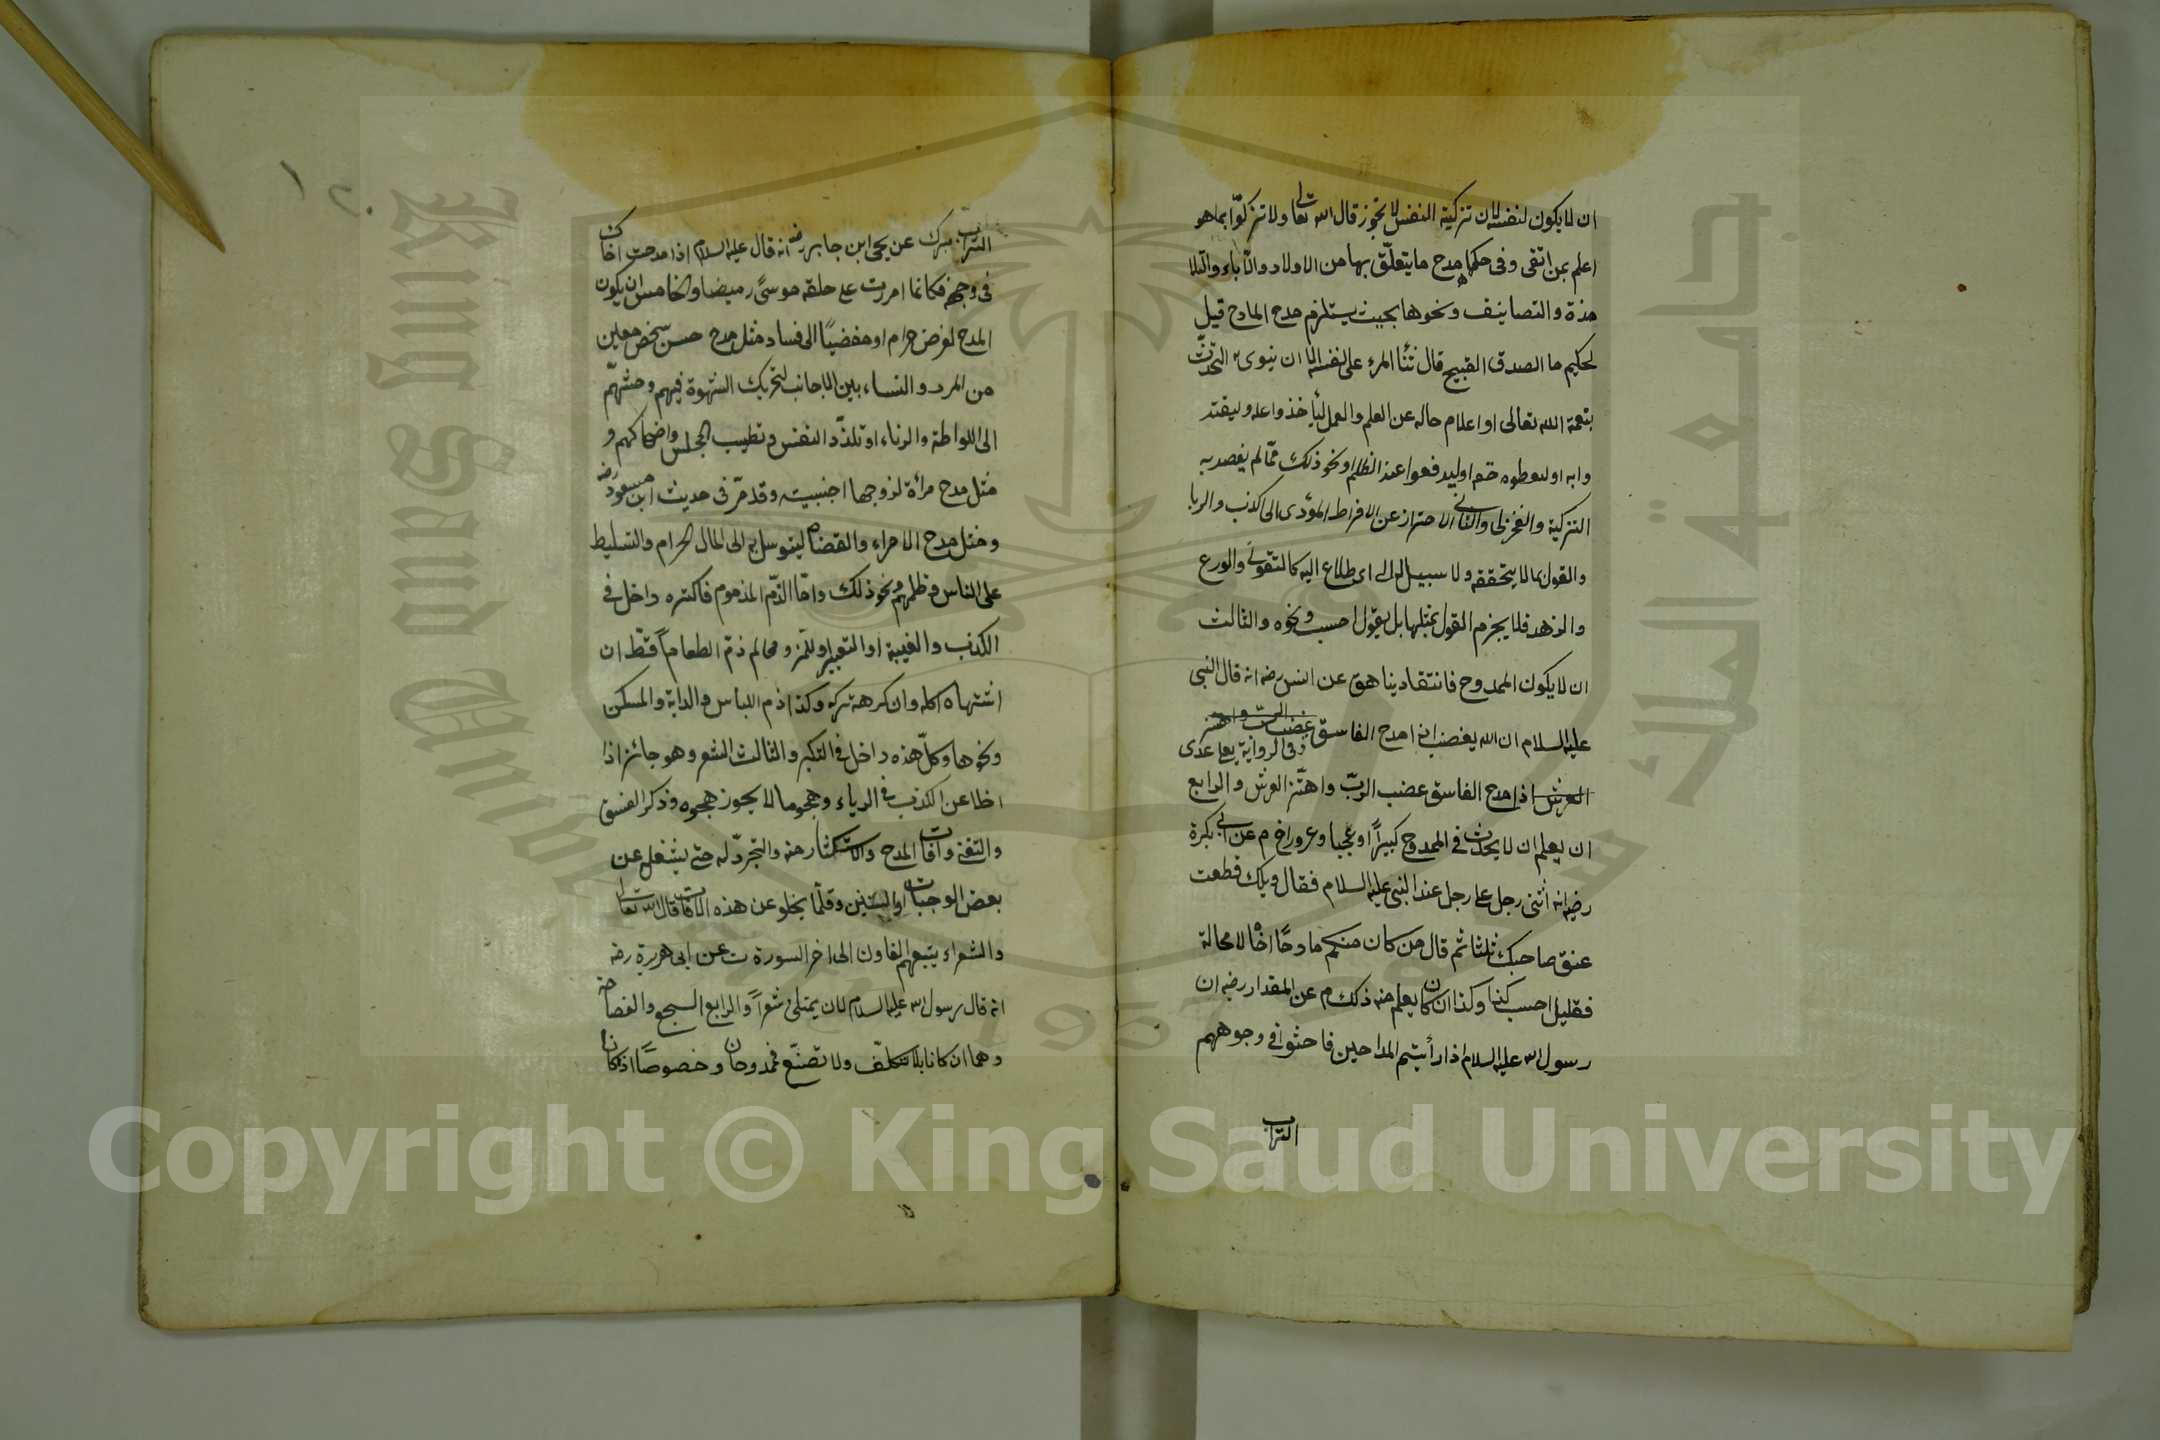 ان لا يكون لنفسه لان تزكية النفس لا يجوز قال الله تعالى ولا تزكوا بما هو
اعلم بمن اتقى وفى حكمها مدح ما يتعلّق بها من الاولاد والآباء والتلا
مذة والتصانيف ونحوها بحيث يستلزم مدح المادح قيل
لحكيم ما الصدق القبيح قال ثنأ المرء على نفسه الا ان ينوى به التحدّث
بنعمة الله تعالى او اعلام حاله عن العلم والعمل ليأخذوا عله وليقتد
وا به او ليعطوه حقه او ليدفعوا عنه الظلم او نحو ذلك ممّا لم يقصد به
التزكية والفخر والثانى الاحتراز عن الافراط المؤدى الى الكذب والريا
والقول بما لا يتحققه ولا سبيل له الى اى طلاع اليه كالتقوى والورع
والزهد فلا يجزم القول بمثلها بل يقول احسب ونحوه والثالث
ان لا يكون الممدوح فاسقا دنيا هق عن انس رضه انه قال النبى
عليه السلام ان الله يغضب اذا مدح الفاسق غضب الرب واهتز
وفى الرواية يعلى عدى
العرش اذا مدح الفاسق غضب الربّ واهتّز العرش والرابع
ان يعلم ان لا يحدث في الممدوح كبرًا او عجبا وغرورا خ م عن ابى بكرة
رضه انه اثنى رجل على رجل عند النبى عليه السلام فقال ويلك قطعت
عنق صاحبك ثلثا ثم قال من كان منكم مادحًا اخًا لا محالة
فقليل احسب كذا وكذا ان كان يعلم منه ذلك م عن المقداد رضه ان
رسول الله عليه السلام اذا رأيتم المداحين فاحثوا فى وجوههم
التراب
التراب مبرك عن يحى ابن جابر رضه انه قال عليه السلام اذا مدحت اخاك
فى وجهه فكانما امررت على حلقه موسىً رميضا والخامس ان يكون
المدح لغرض حرام او مفضيًا الى فساد مثل مدح حسن شخص معين
من المرد والنساء بين الاجانب لتحريك الشهوة فيهم وحثهمّ
الى اللواطة والزناء او تلذّذ النفس وتطيب المجلس واضحاكهم و
مثل مدح مرأة لزوجها اجنبيته وقد مرّ فى حديث ابن مسعود رضه
ومثل مدح الامراء والقضاة ليتوسل به الى المال الحرام والتسليط
على الناس وظلمهم ونحو ذلك وامّا الذّم المذموم فاكثره داخل فى
الكذب والغيبة او التعيير او اللمز ومما لم ذمّ الطعام قطّ ان
اشتهاه اكله وان كرهه تركه وكذا ذم اللباس والدابة والمسكن
ونحوها وكلّ هذه داخل فى التكبر والثالث الشعر وهو جائز اذا
اخلا عن الكذب فى الرياء وهجو ما لا يجوز هجوه وذكر الفسق
والتغنى وآفات المدح والاستكثار منه والتجردّ له حتى يشغله عن
بعض الوجبات او السنن وقلّما يخلو عن هذه الآفات قال الله تعالى
والشعراء يتبعهم الغاون الى اخر السورة ت عن ابى هريرة رضه
انه قال رسول الله عليه السلام لان يمتلئ شعراً والرابع السجع والفصاحة
وهما ان كانا بلا تكلّف ولا تصنّع فممدوحان وخصوصًا اذا كان